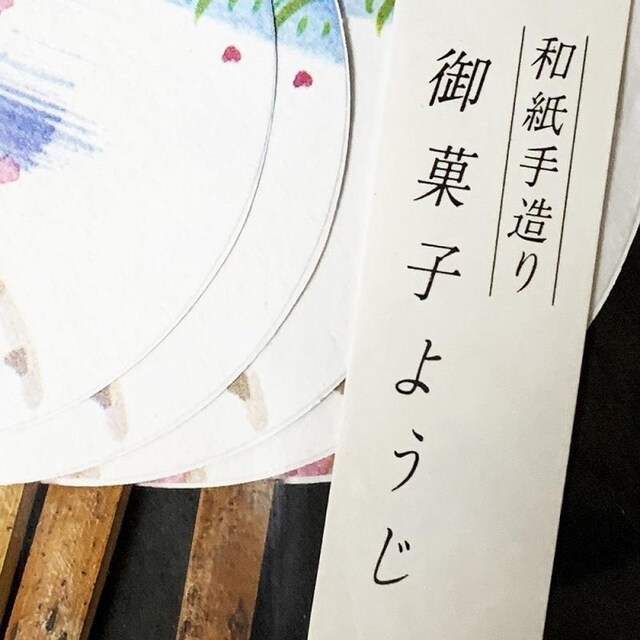 和紙手造り
御菓子ようじ